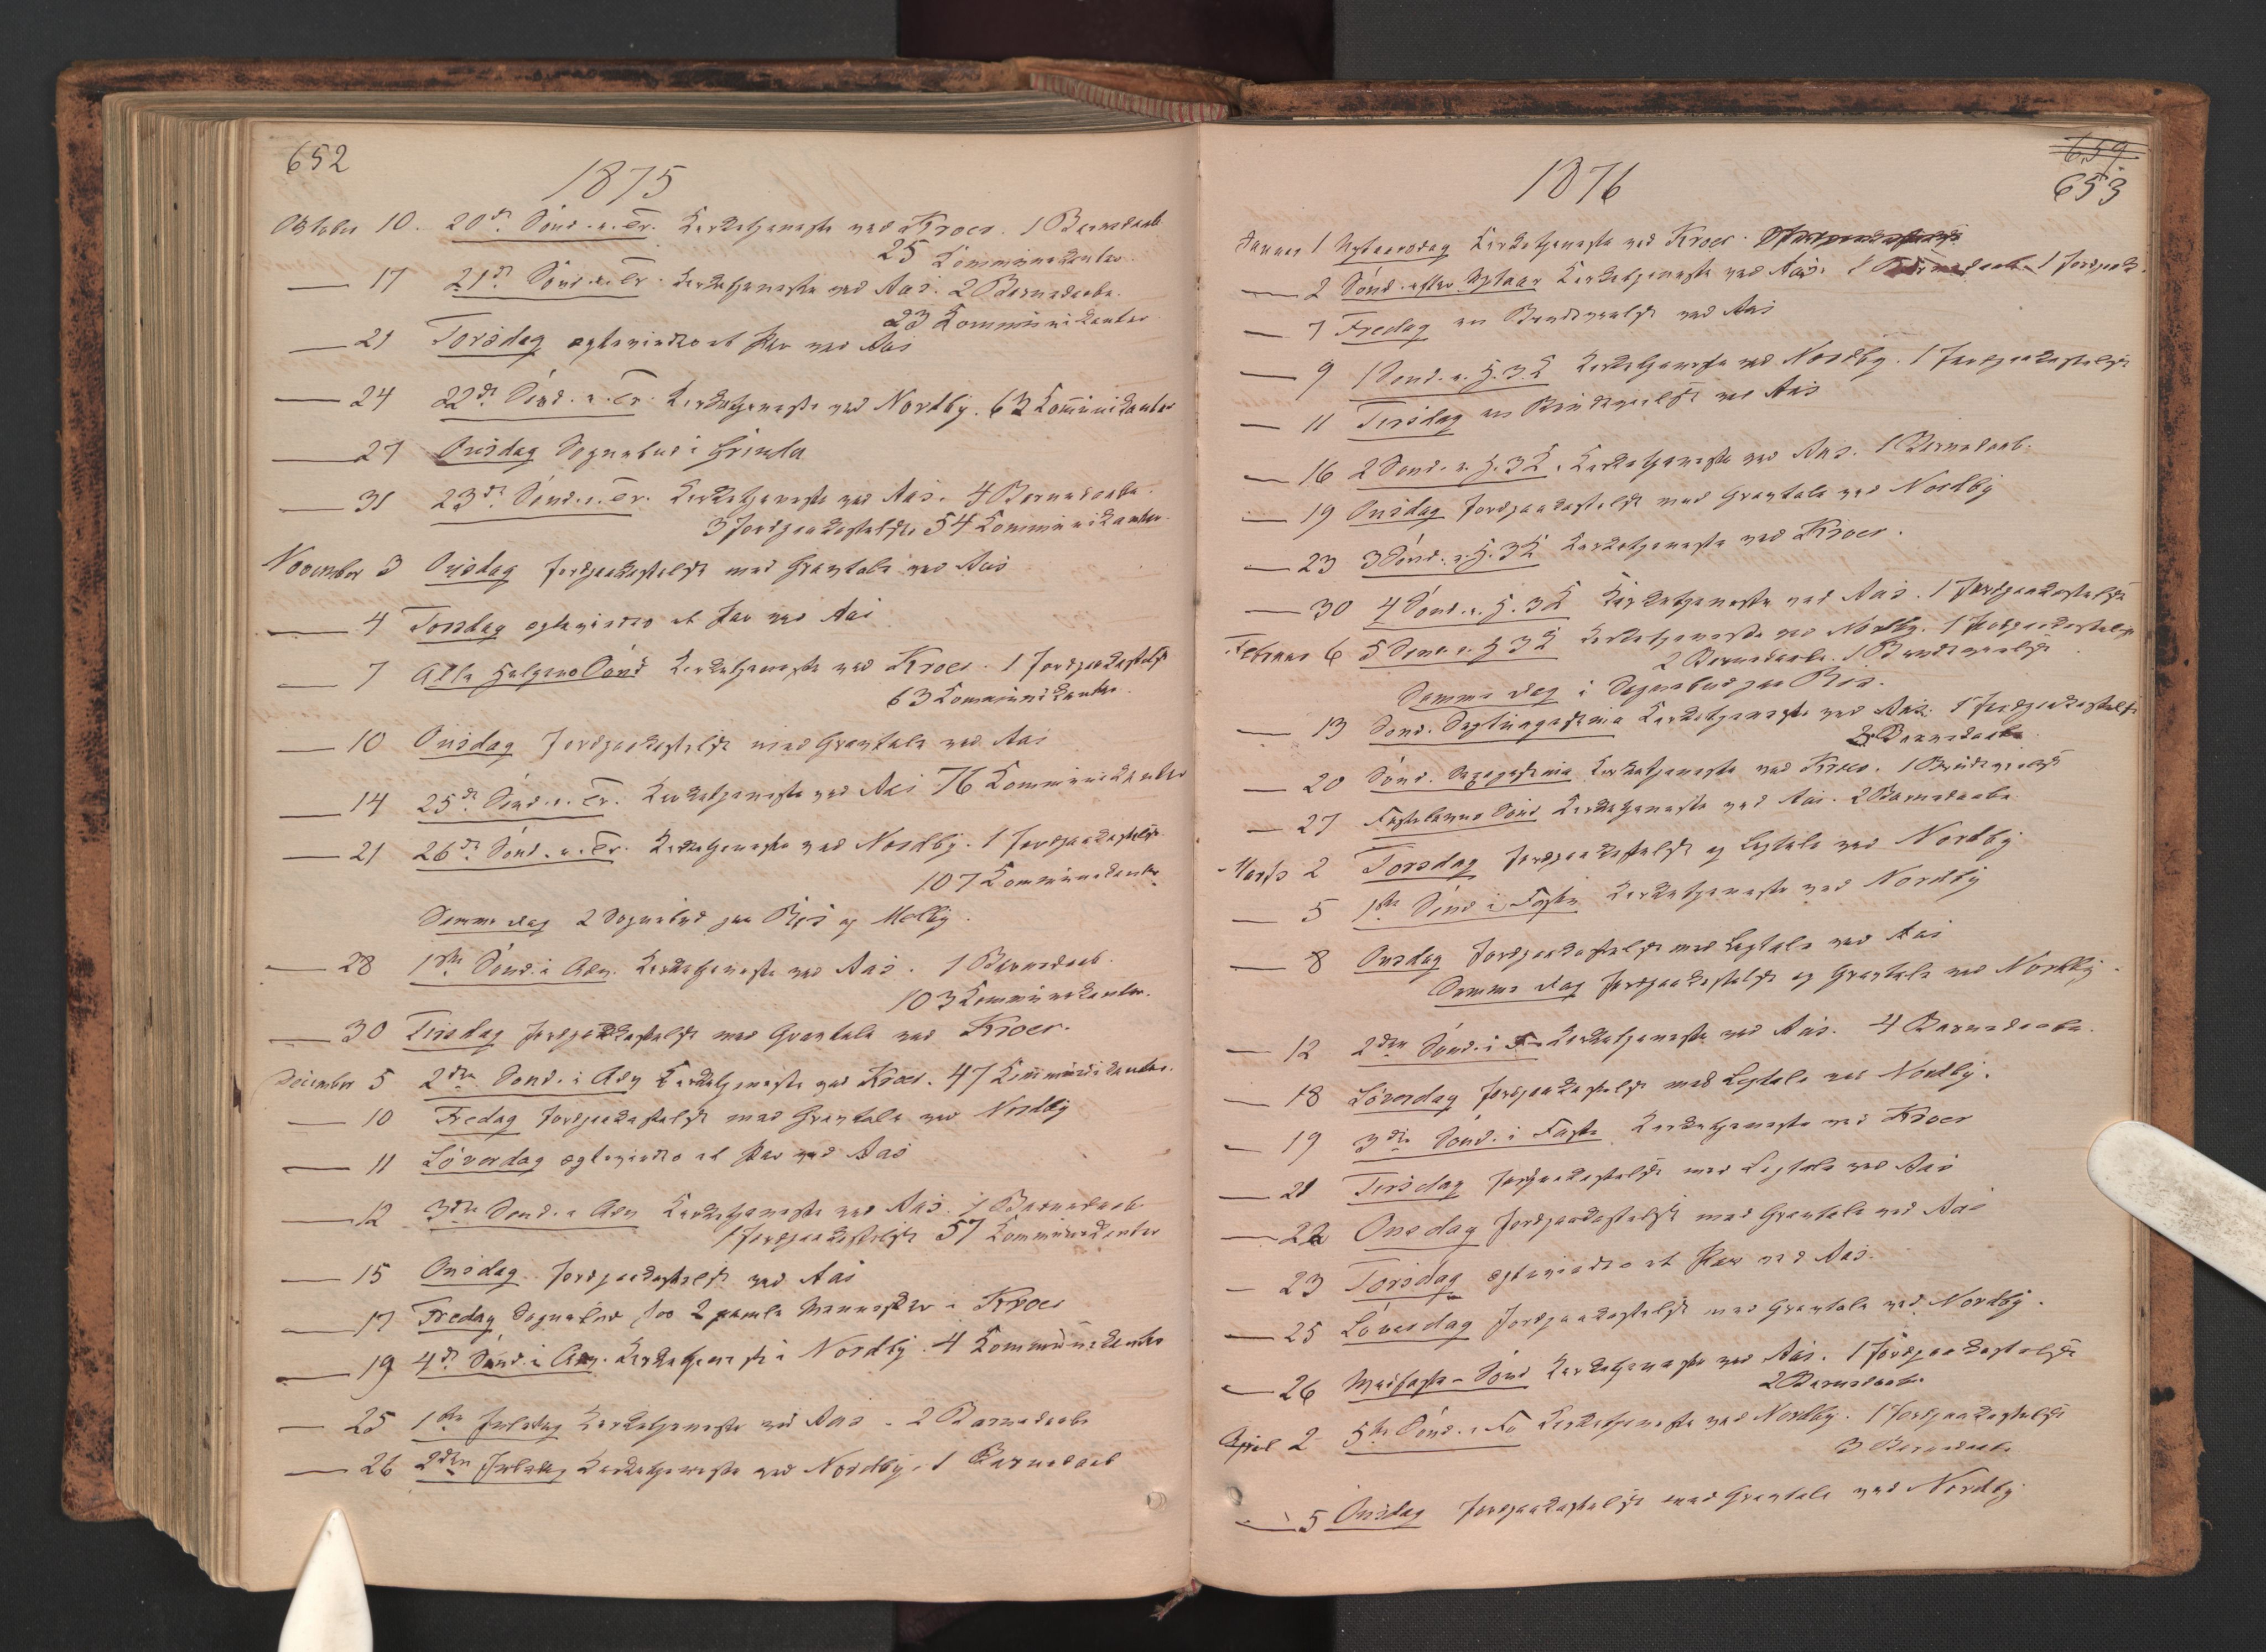 652
1875
Oktober 10. 20de Sønd. e. Tr. Kirketjeneste ved Kroer. 1 Barnedaab
25 Kommunikanter
17 21de Sønd. e. Tr. Kirketjeneste ved Aas. 2 Barnedaabe.
23 Kommunikanter
21 Torsdag egteviedes et Par ved Aas
24 22de Sønd. e. Tr. Kirketjeneste ved Nordby. 62 Kommunikanter
27 Onsdag Sognebud i Grinda
31 23de Sønd. e. Tr. Kirketjeneste ved Aas. 4 Barnedaabe.
3 Jordpaakastelse 54 Kommunikanter.
November 3 Onsdag Jordpaakastelse med Gravtale ved Aas
4 Torsdag egteviedes et Par ved Aas
7 Alle Helgens Sønd Kirketjeneste ved Kroer. 1 Jordpaakastelse
63 Kommunikanter.
10 Onsdag Jordpaakastelse med Gravtale ved Aas
14 25de Sønd. e. Tr. Kirketjeneste ved Aas 76 Kommunikanter
21 26de Sønd. e. Tr. Kirketjeneste ved Nordby. 1 Jordpaakastelse
107 Kommunikanter
Samme Dag 2 Sognebud paa Riis og Melby.
28 1ste Sønd. i Adv. Kirketjeneste ved Aas. 1 Barnedaab.
103 Kommunikanter.
30 Tirsdag Jordpaakastelse med Gravtale ved Kroer.
December 5 2den Sønd. i Adv Kirketjeneste ved Kroer. 47 Kommunikanter.
10 Fredag Jordpaakastelse med Gravtale ved Nordby
11 Løverdag egteviedes et Par ved Aas
12 3die Sønd. i Adv Kirketjeneste ved Aas. 1 Barnedaab
1 Jordpaakastelse 57 Kommunikanter
15 Onsdag Jordpaakastelse ved Aas
17 Fredag Sognebud hos 2 gamle Mennesker i Kroer
19 4de Sønd. i Adv. Kirketjeneste i Nordby. 4 Kommunikanter
25 1ste Juledag Kirketjeneste ved Aas. 2 Barnedaabe
26 2den Juledag Kirketjeneste ved Nordby. 1 Barnedaab
659.
653
1876
Januar 1 Nytaarsdag Kirketjeneste ved Kroer.
2 Sønd. efter Nytaar Kirketjeneste ved Aas. 1 Jordpaak.
7 Fredag en Brudevielse ved Aas
9 1 Sønd. e. H. 3. K Kirketjeneste ved Nordby. 1 Jordpaakastelse
11 Tirsdag en Brudevielse ved Aas
16 2 Sønd. e. H. 3 K. Kirketjeneste ved Aas. 1 Barnedaab.
19 Onsdag Jordpaakastelse med Gravtale ved Nordby
23 3 Sønd. e. H. 3 K Kirketjeneste ved Kroer.
30 4 Sønd. e. H. 3 K Kirketjeneste ved Aas. 1 Jordpaakastelse
Februar 6 5 Sønd. e. H 3 K Kirketjeneste ved Nordby. 1 Jordpaakastelse
2 Barnedaabe. 1 Brudevielse
Samme Dag i Sognebud paa Riis.
13 Sønd. Septuagesima Kirketjeneste ved Aas. 1 Jordpaakastelse
3 Barnedaabe
20 Sønd. Sexagesima Kirketjeneste ved Kroer. 1 Brudevielse
27 Fastelavns Sønd Kirketjeneste ved Aas. 2 Barnedaabe.
Marts 2 Torsdag Jordpaakastelse og Ligtale ved Nordby
5 1ste Sønd i Faste Kirketjeneste ved Nordby
8 Onsdag Jordpaakastelse med Ligtale ved Aas
Samme Dag Jordpaakastelse og Gravtale ved Nordby.
12 2den Sønd. i F Kirketjeneste ved Aas. 4 Barnedaabe.
18 Løverdag Jordpaakastelse med Ligtale ved Nordby.
19 3die Sønd. i Faste Kirketjeneste ved Kroer
21 Tirsdag Jordpaakastelse med Ligtale ved Aas
22 Onsdag Jordpaakastelse med Gravtale ved Aas
23 Torsdag egteviedes et Par ved Aas.
25 Løverdag Jordpaakastelse med Gravtale ved Nordby.
26 Midfaste-Sønd Kirketjeneste ved Aas. 1 Jordpaakastelse
2 Barnedaabe.
April 2 5te Sønd. i Fa Kirketjeneste ved Nordby. 1 Jordpaakastelse
3 Barnedaabe
5 Onsdag Jordpaakastelse med Gravtale ved Nordby